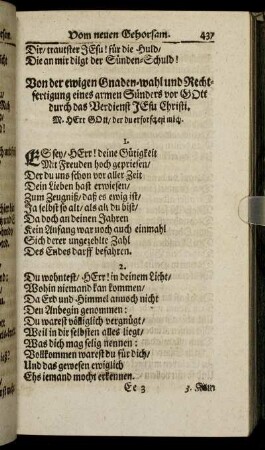 Vom neuen Gehorsam. 437
Dir/ trautster JEsu! für die Huld/
Die an mir dilgt der Sünden-Schuld!
Von der ewigen Gnaden-wahl und Recht-
fertigung eines armen Sünders vor GOtt
durch das Verdienst JEsu Christi.
M. HErr GOtt, der du erforschest mich.
1.
ES sey/ HErr! deine Gütigkeit
Mit Freuden hoch gepriesen/
Der du uns schon vor aller Zeit
Dein Lieben hast erwiesen/
Zum Zeugniß/ daß es ewig ist/
Ja selbst so alt/ als du bist/
Da doch an deinen Jahren
Kein Anfang war noch auch einmahl
Sich derer ungezehlte Zahl
Des Endes darff befahren.
2.
Du wohntest/ HErr! in deinem Licht/
Wohin niemand kan kommen/
Da Erd und Himmel annoch nicht
Den Anbegin genommen:
Du warest völliglich vergnügt/
Weil in dir selbsten alles liegt/
Was dich mag selig nennen:
Vollkommen warest du für dich/
Und das gewesen ewiglich
Ehs iemand mocht erkennen.
Ee 3 3.